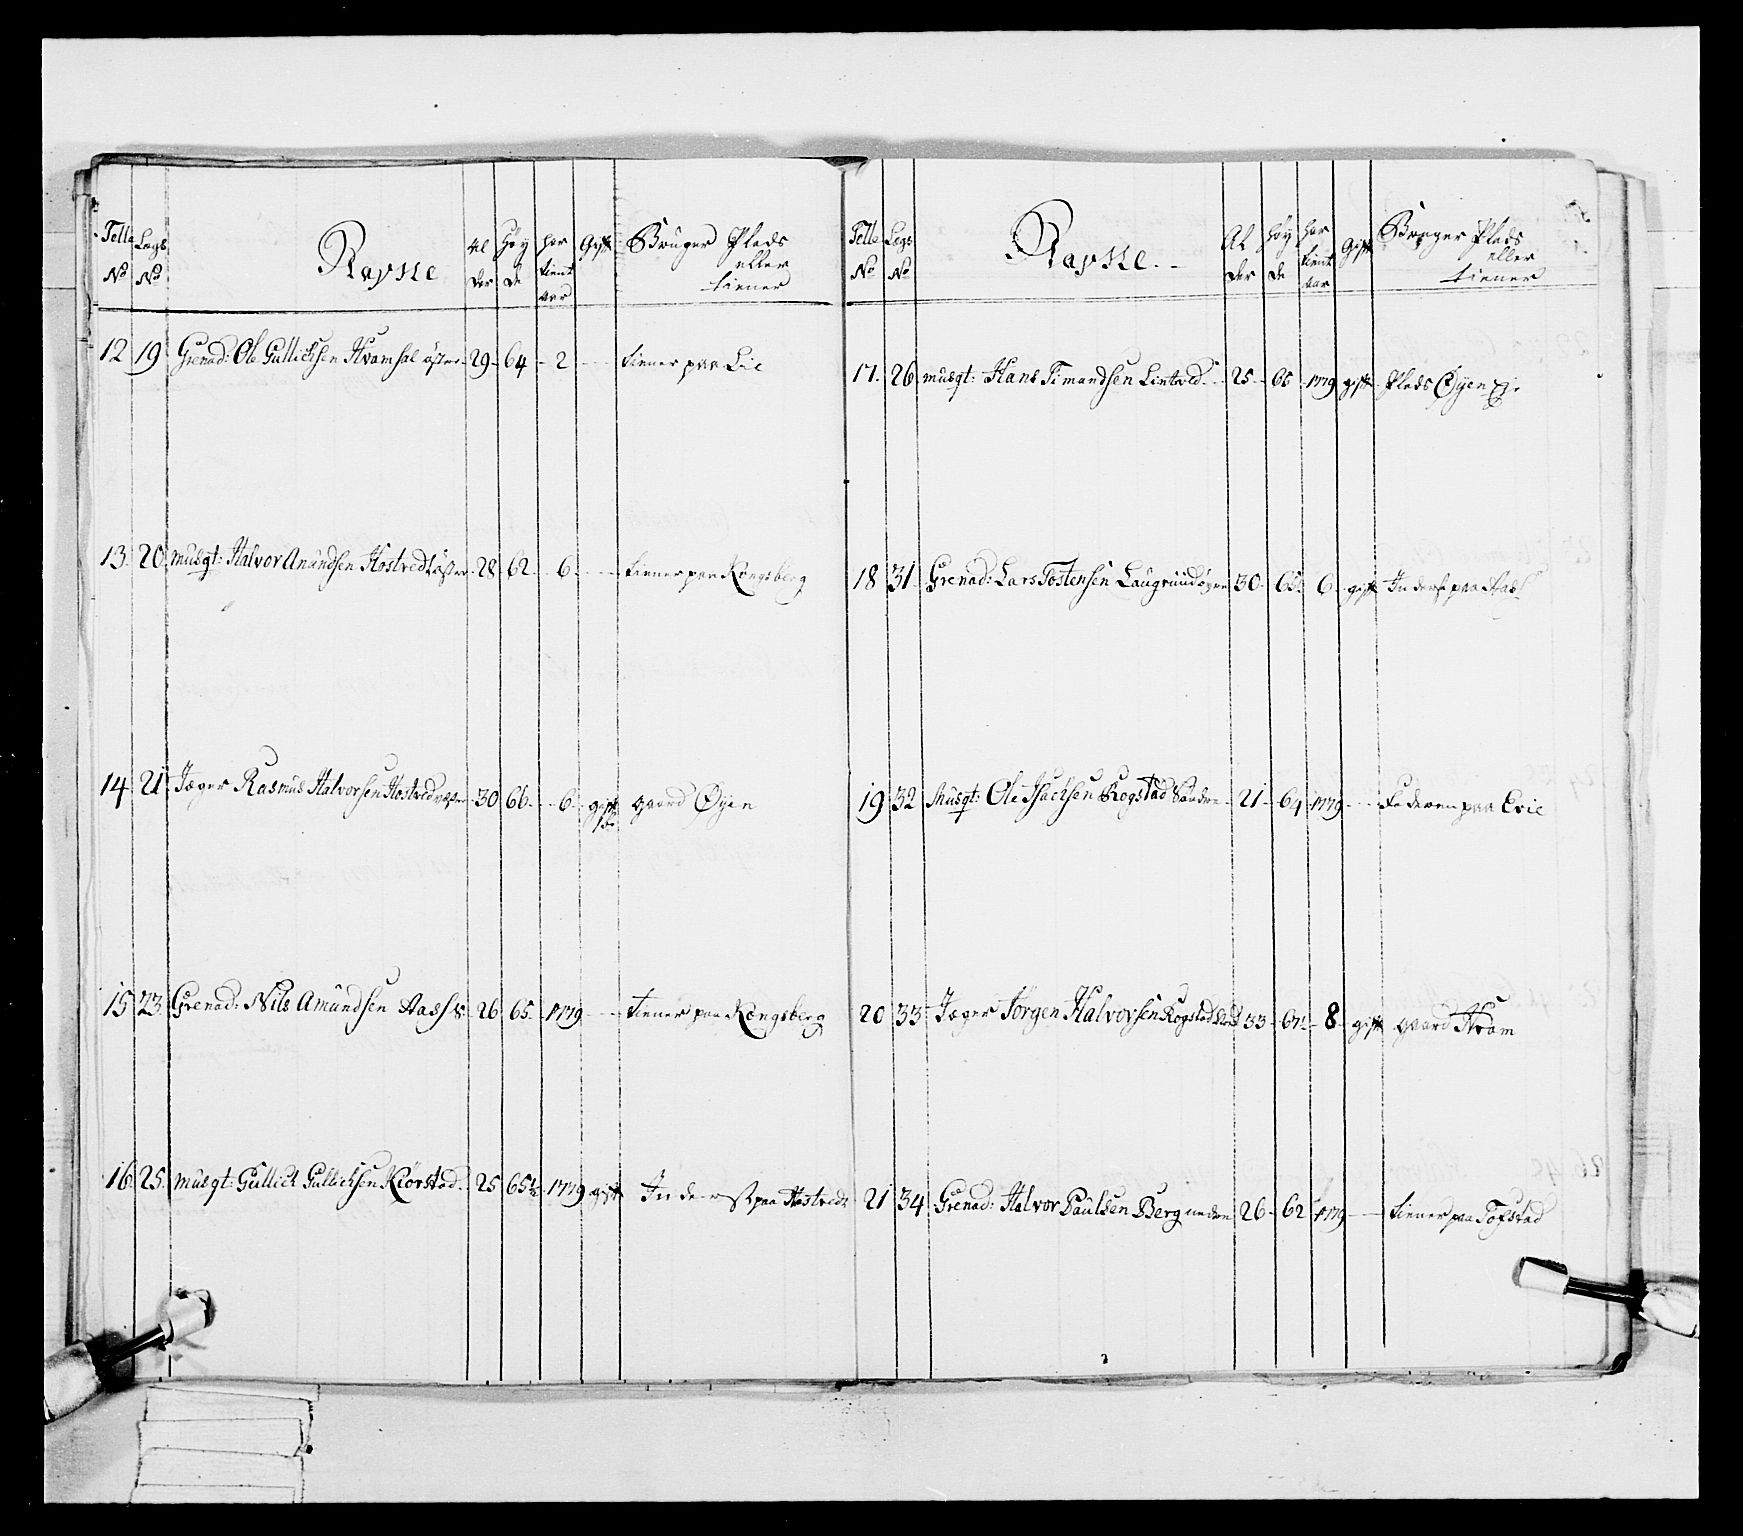 Telle No Legs No Navne Al der Høy de har tient aar Gift Bruger Plads eller tiener
12 19 Grenad: Ole Gullichsen Hvamsal øster 29 64 2 tiener paa Lie
13 20 musqt: Halvor Anundsen Hostvedt øster 28 62 6 tiener paa Kongsberg
14 21 Jæger Rasmus Halvorsen Hostved 30 66 6 gift gaard Øyen
15 23 Grenad: Nils Amundsen Aass 26 65 1779 tiener paa Kongsberg
16 25 musqt: Gullick Gullichsen Kiørstad 25 65½ 1779 gift Inderst paa Hostvedt
Telle No Legs No Navne Al der Høy de har tient aar Gift Bruger Plads eller tiener
17 26 musqt: Hans Simandsen Lintved 25 66 1779 gift Plads Øyen Eje
18 31 Grenad: Lars Tostensen Laugrund øvre 30 65 6 gift Inderst paa Aas
19 32 Musqt: Ole Isachsen Rogstad Søndre 21 64 1779 Faderen paa Evie
20 33 Jæger Jørgen Halvorsen Rogstad Nord 33 67 8 gift gaard Hvam
21 34 Grenad: Halvor Paulsen Berg nedre 26 62 1779 tiener paa Tofstad